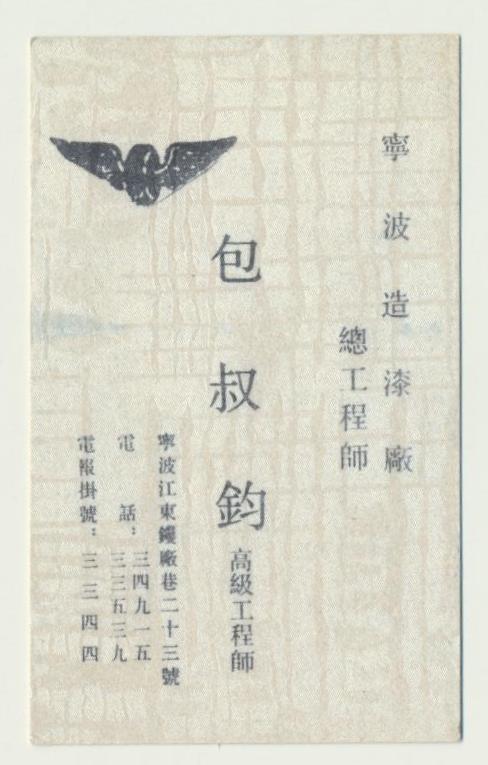 寧波造漆廠
總工程師
包叔鈞 高級工程師
寧波江東鑊廠巷二十三號
電話：三四九一五
三三五三九
電報掛號：三三四四